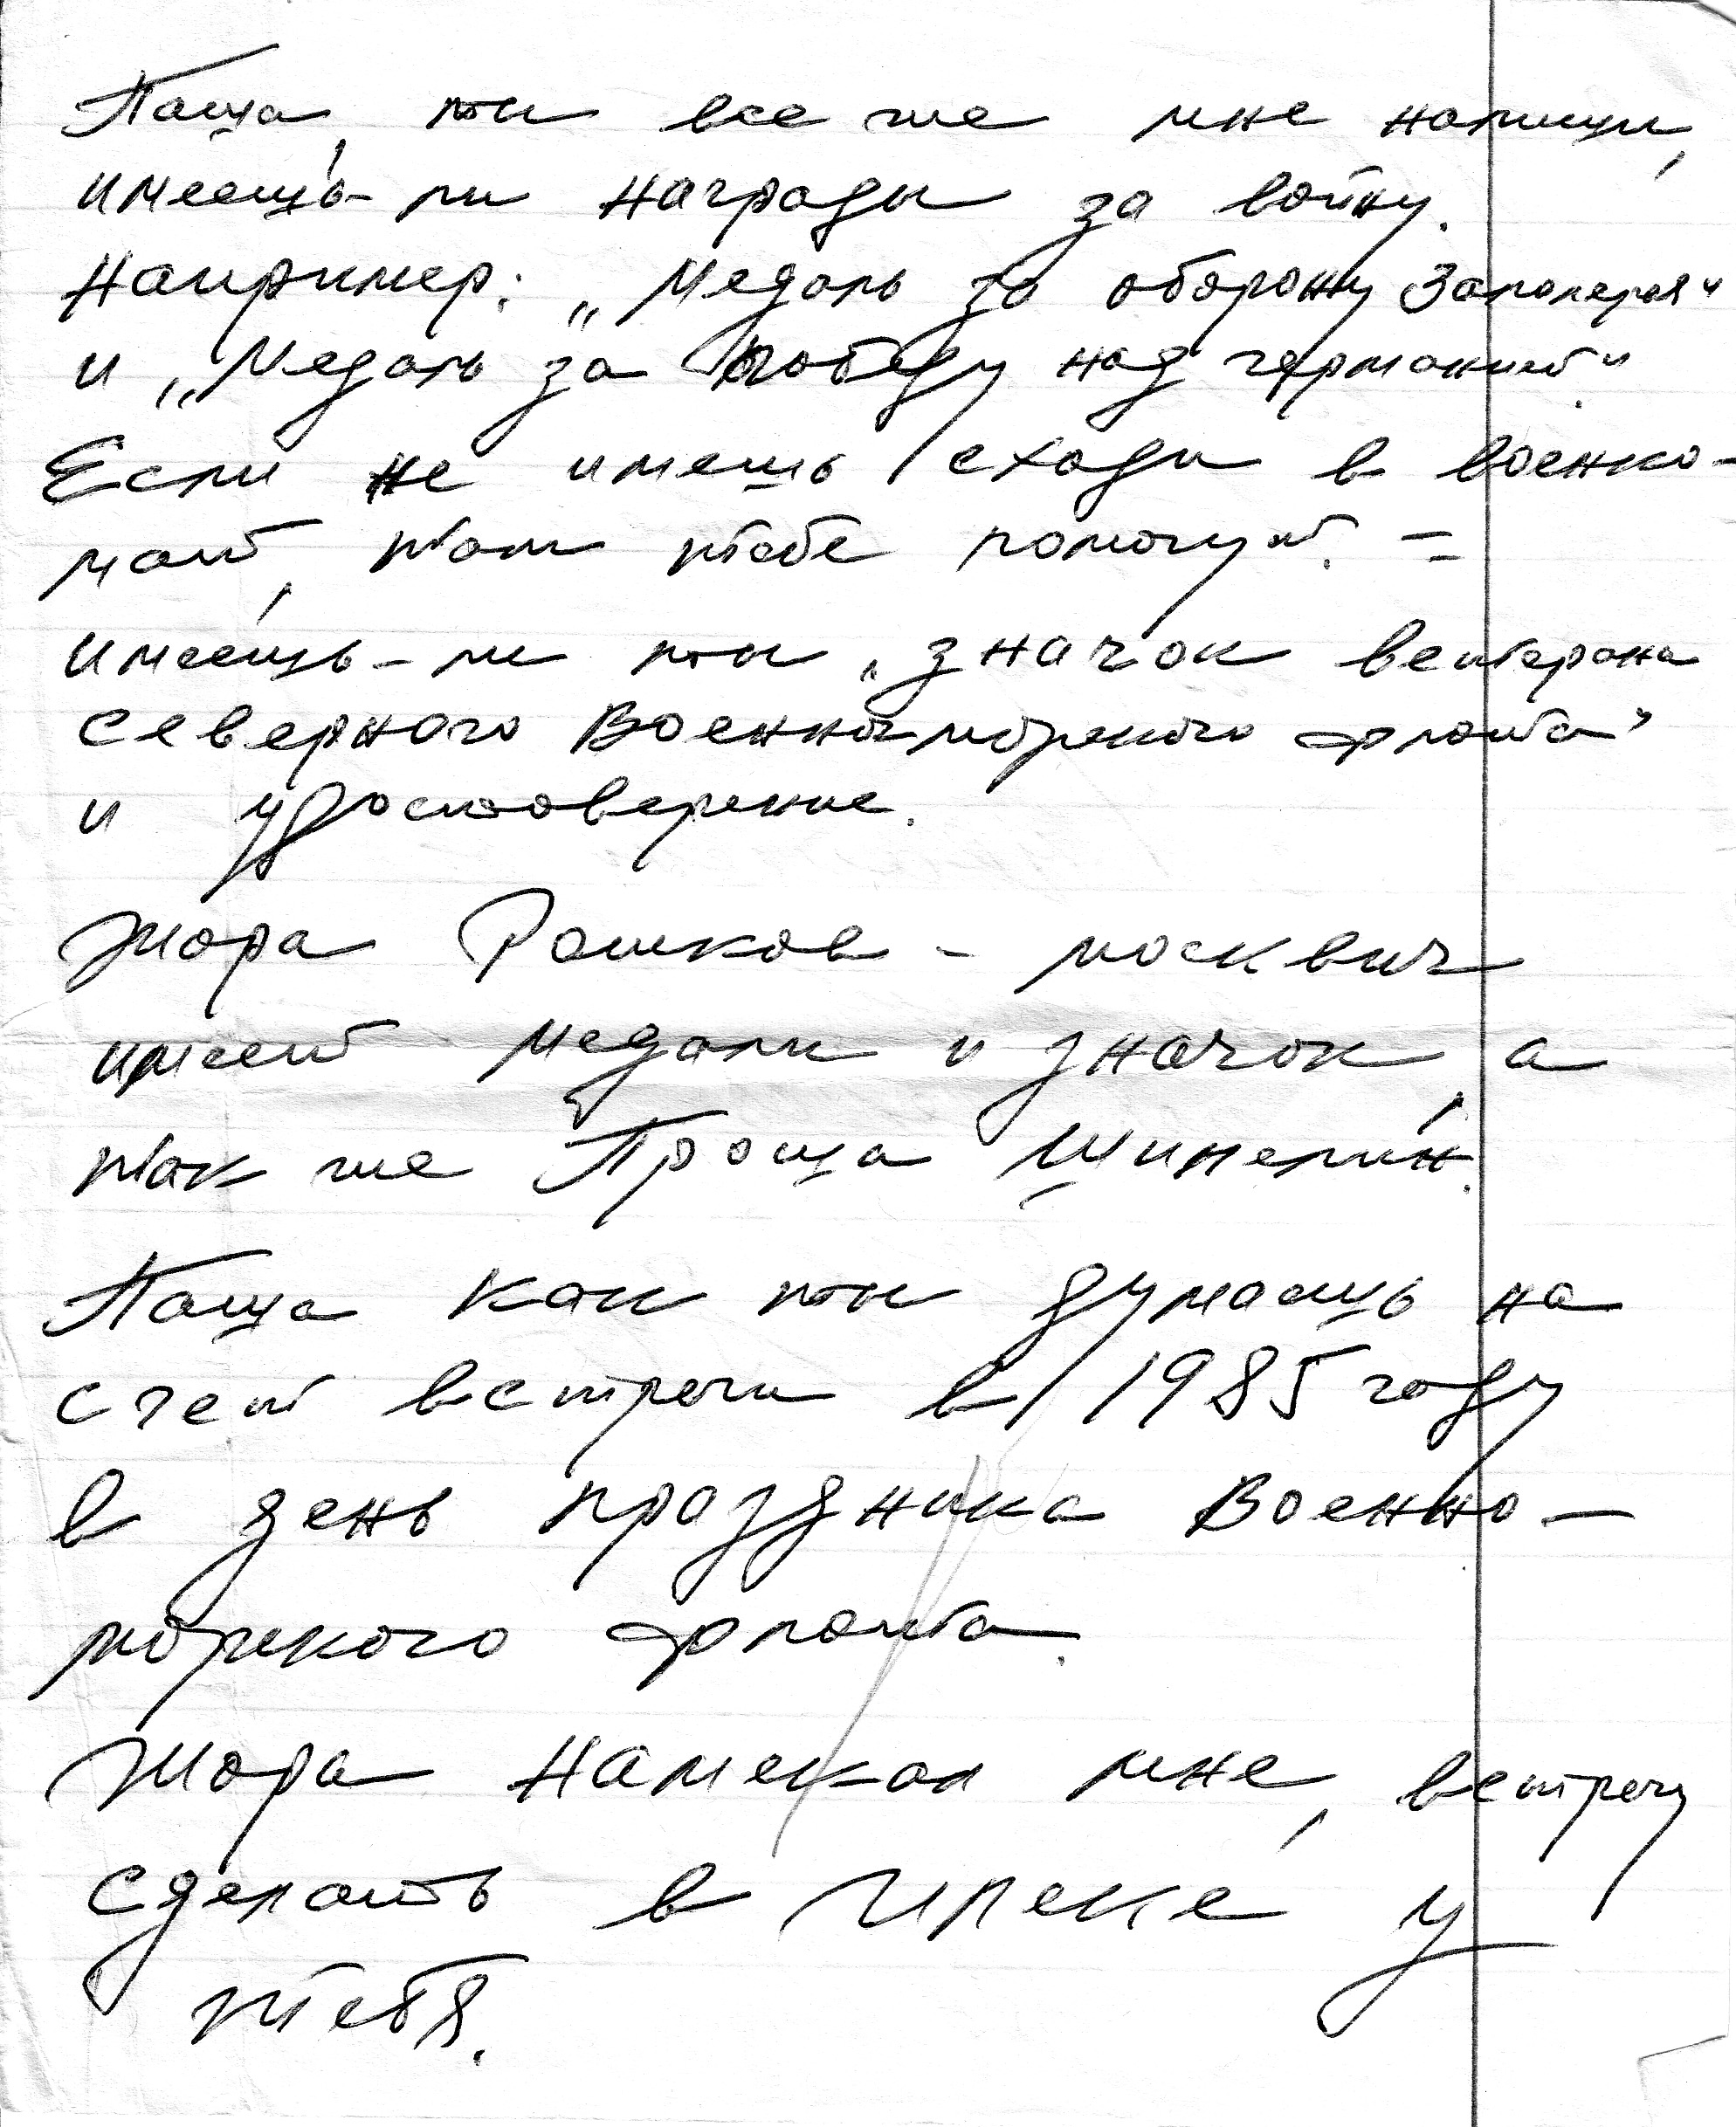 Паша, ты все же мне напиши,
имеешь-ли награды за войну.
Например: „Медаль за оборону Заполярья"
и „Медаль за победу над германией".
Если не имешь сходи в военко-
мат, там тебе помогут. =
имеешь-ли ты „значок ветерана
северного Военноморского флота"
и удостоверение.
Жора Рашков - москвич
имеет медали и значок, а
так же Проша Шинелин.
Паша как ты думаешь на
счет встречи в 1985 году
в день праздника Военно-
морского флота.
Жора намекал мне, встречу
сделать в Илеке у
тебя.